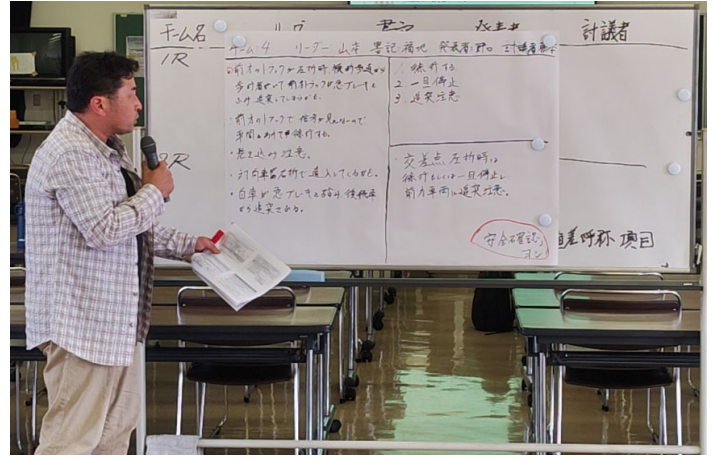 チーム名
討議者
1R
チーム4 リーダー 山本 書記 菊地 発表者
前方のトラックが左折時、横断歩道から
歩行者がいて前方トラックが急ブレーキを
ふみ追突してしまうかも。
前方のトラックで信号が見えないので
車間をあけて徐行する。
巻き込み注意。
対向車が右折で進入してくるかも。
自車が急ブレーキを踏み、後続車
から追突される。
1. 徐行する
2. 一旦停止
3. 追突注意
2R
交差点左折時は
徐行もしくは一旦停止し
前方車両に追突注意。
安全確認
ヨシ
指差呼称 項目